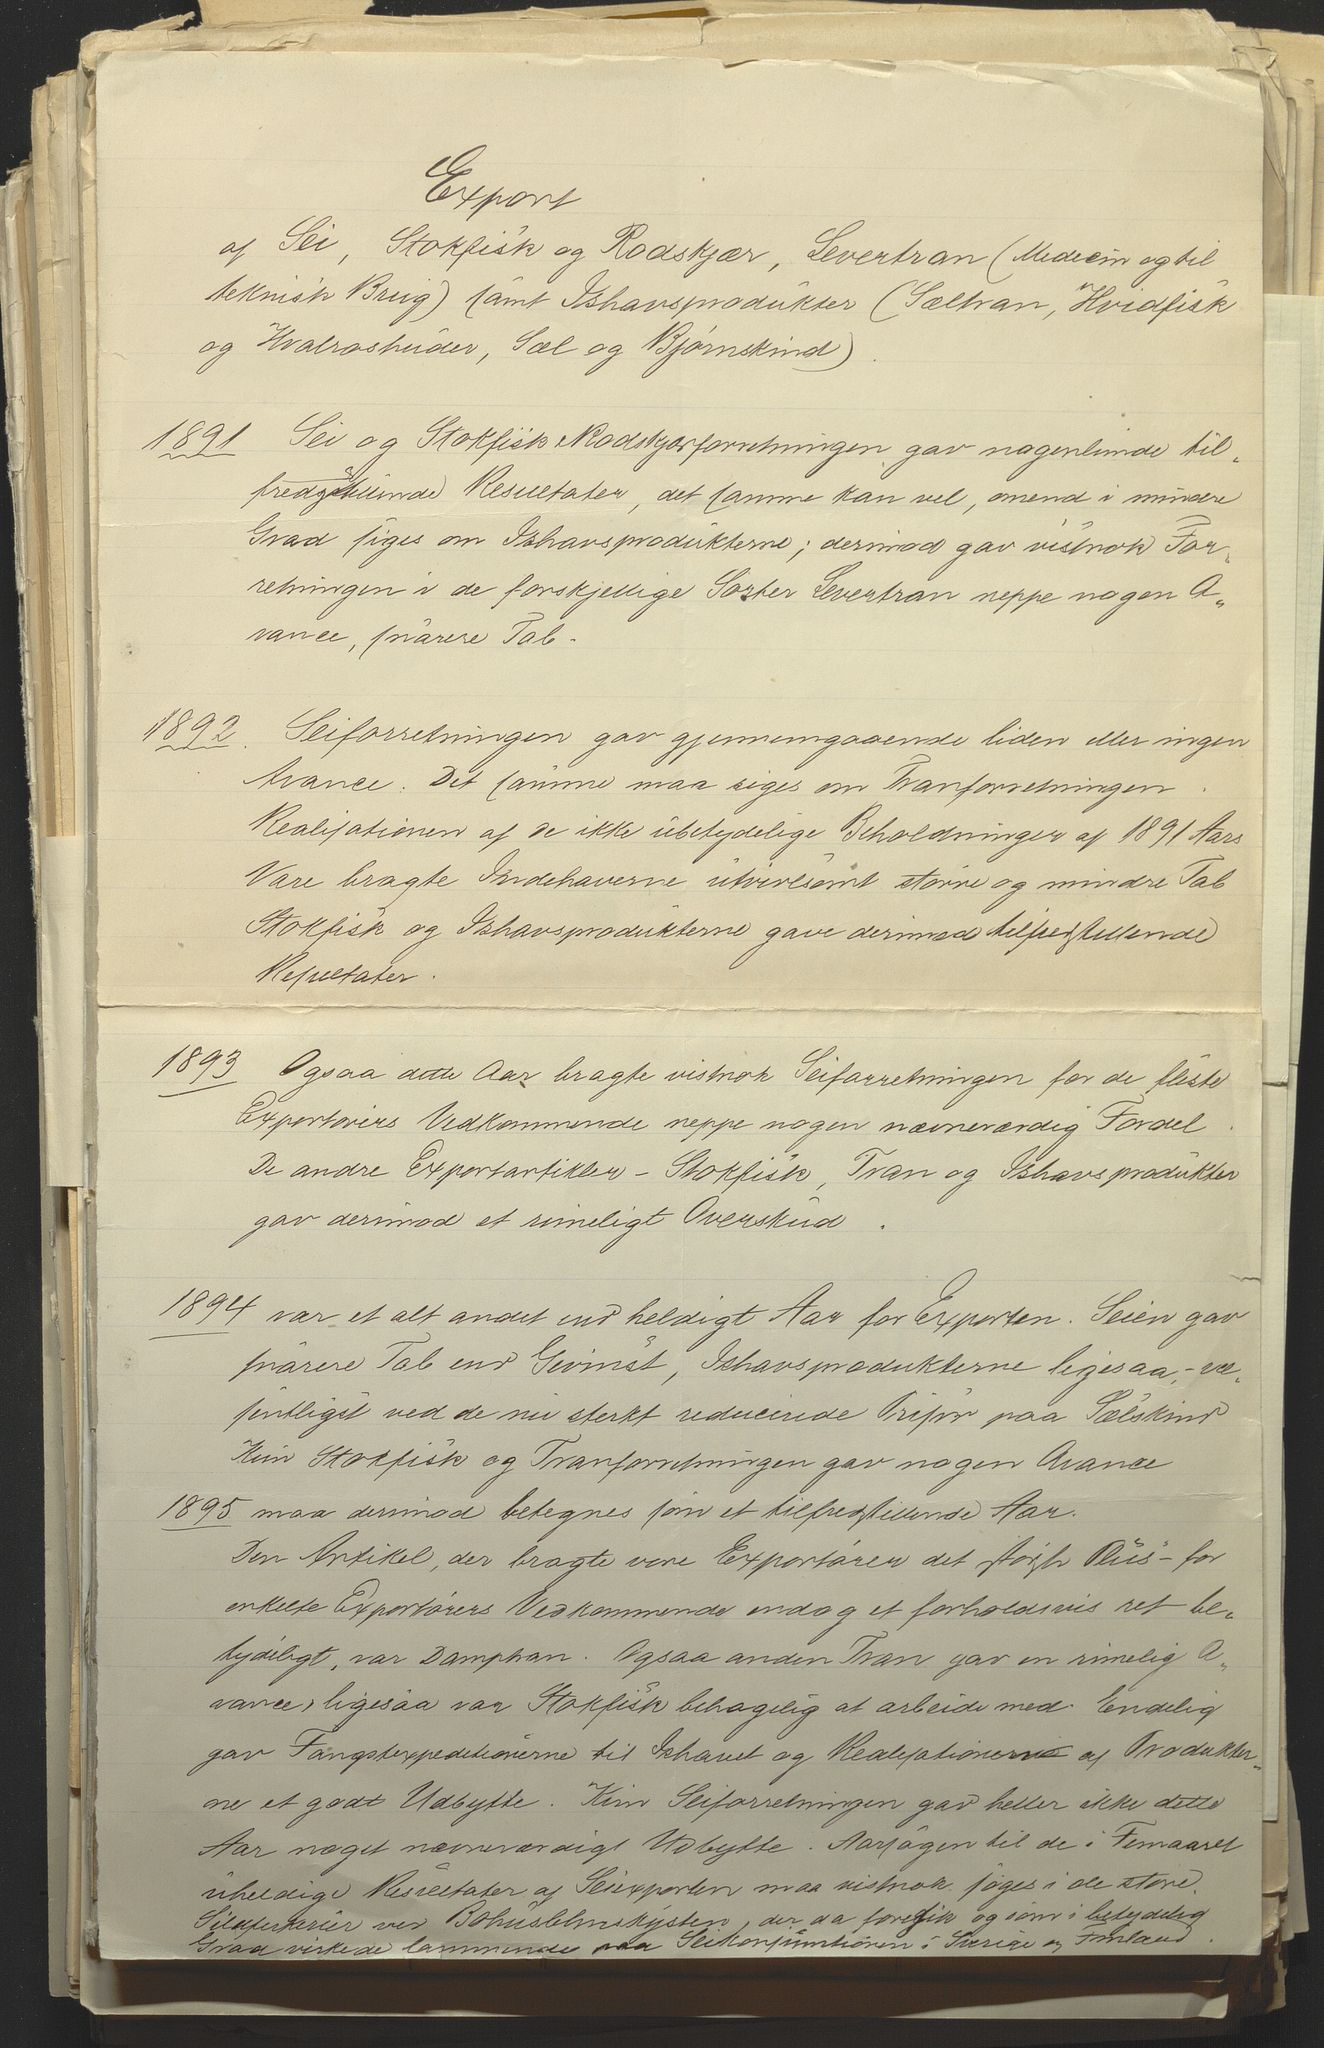 Export
af Sei, Stokfisk og Rodskjær, Levertran (Medicin og til
teknisk Brug) samt Ishavsprodukter (Sæltran, Hvidfisk
og Hvalroshuder, Sæl og Bjørnskind).
1891 Sei og Stokfisk Rodskjærforretningen gav nogenlunde til-
fredsstillende Resultater, det samme kan vel, omend i mindre
Grad siges om Ishavsprodukterne; derimod gav vistnok For-
retningen i de forskjellige Sorter Levertran neppe nogen A-
vance, snarere Tab.
1892. Seiforretningen gav gjennemgaaende liden eller ingen
Avance. Det samme maa siges om Tranforretningen.
Realisationen af de ikke ubetydelige Beholdninger af 1891 Aars
Vare bragte Indehaverne utvivlsomt større og mindre Tab
Stokfisk og Ishavsprodukterne gave derimod tilfredstillende
Resultater.
1893 Ogsaa dette Aar bragte vistnok Seiforretningen for de fleste
Exportørers Vedkommende neppe nogen nævneværdig Fordel.
De andre Exportartikler - Stokfisk, Tran og Ishavsprodukter
gav derimod et rimeligt Overskud.
1894 var et alt andet end heldigt Aar for Exporten. Seien gav
snarere Tab end Gevinst, Ishavsprodukterne ligesaa, - væ-
sentligst ved de nu sterkt reducerede Priser paa Sælskind
Kun Stokfisk og Tranforretningen gav nogen Avance
1895 maa derimod betegnes som et tilfredstillende Aar.
Den Artikel, der bragte vore Exportører det største Plus - for
enkelte Exportørers Vedkommende endog et forholdsvis ret be-
tydeligt, var Damptran. Ogsaa anden Tran gav en rimelig A-
vance, ligesaa var Stokfisk behagelig at arbeide med. Endelig
gav Fangstexpeditionerne til Ishavet og Realisationerne af Produkter-
ne et godt Udbytte. Kun Seiforretningen gav heller ikke dette
Aar noget nævneværdigt Udbytte. Aarsagen til de i Femaaret
uheldige Resultater af Seiexporten maa vistnok søges i de store
Sildfiskerier ved Bohuslenskysten, der da foregik og som i betydelig
Grad virkede lammende paa Seikonjunkturen i Sverige og Finland.